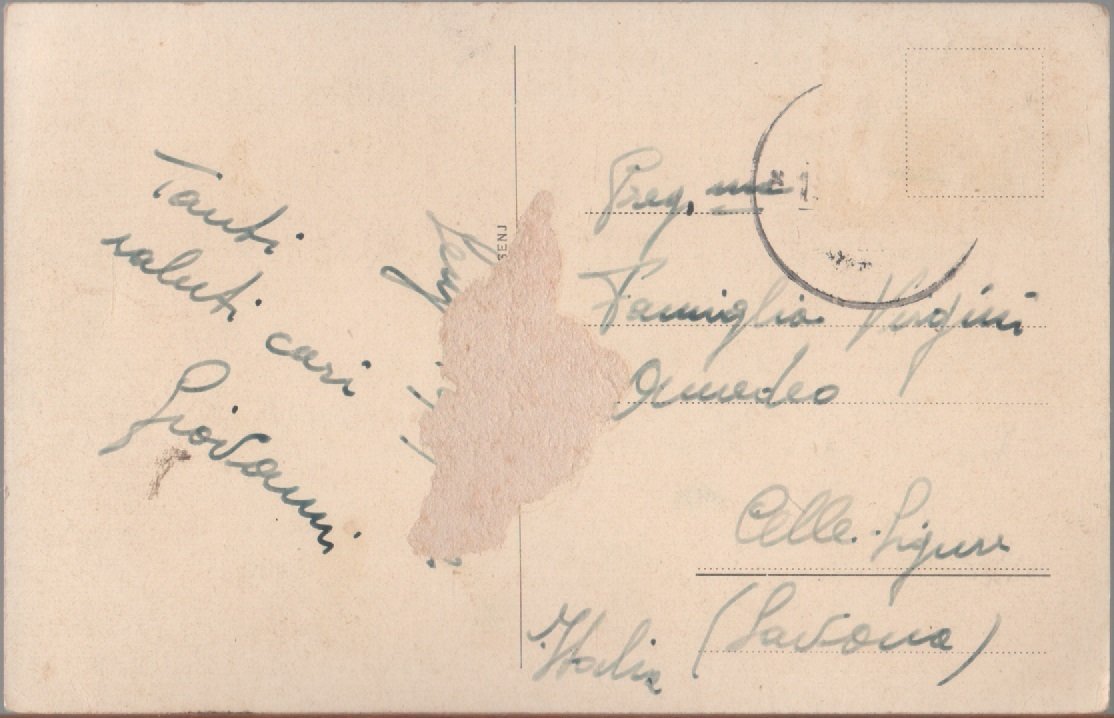 Tanti
saluti cari
Giovanni
SENJ
Preg. ma
Famiglia Virginii
Amedeo
Celle-Ligure
(Savona)
Italia